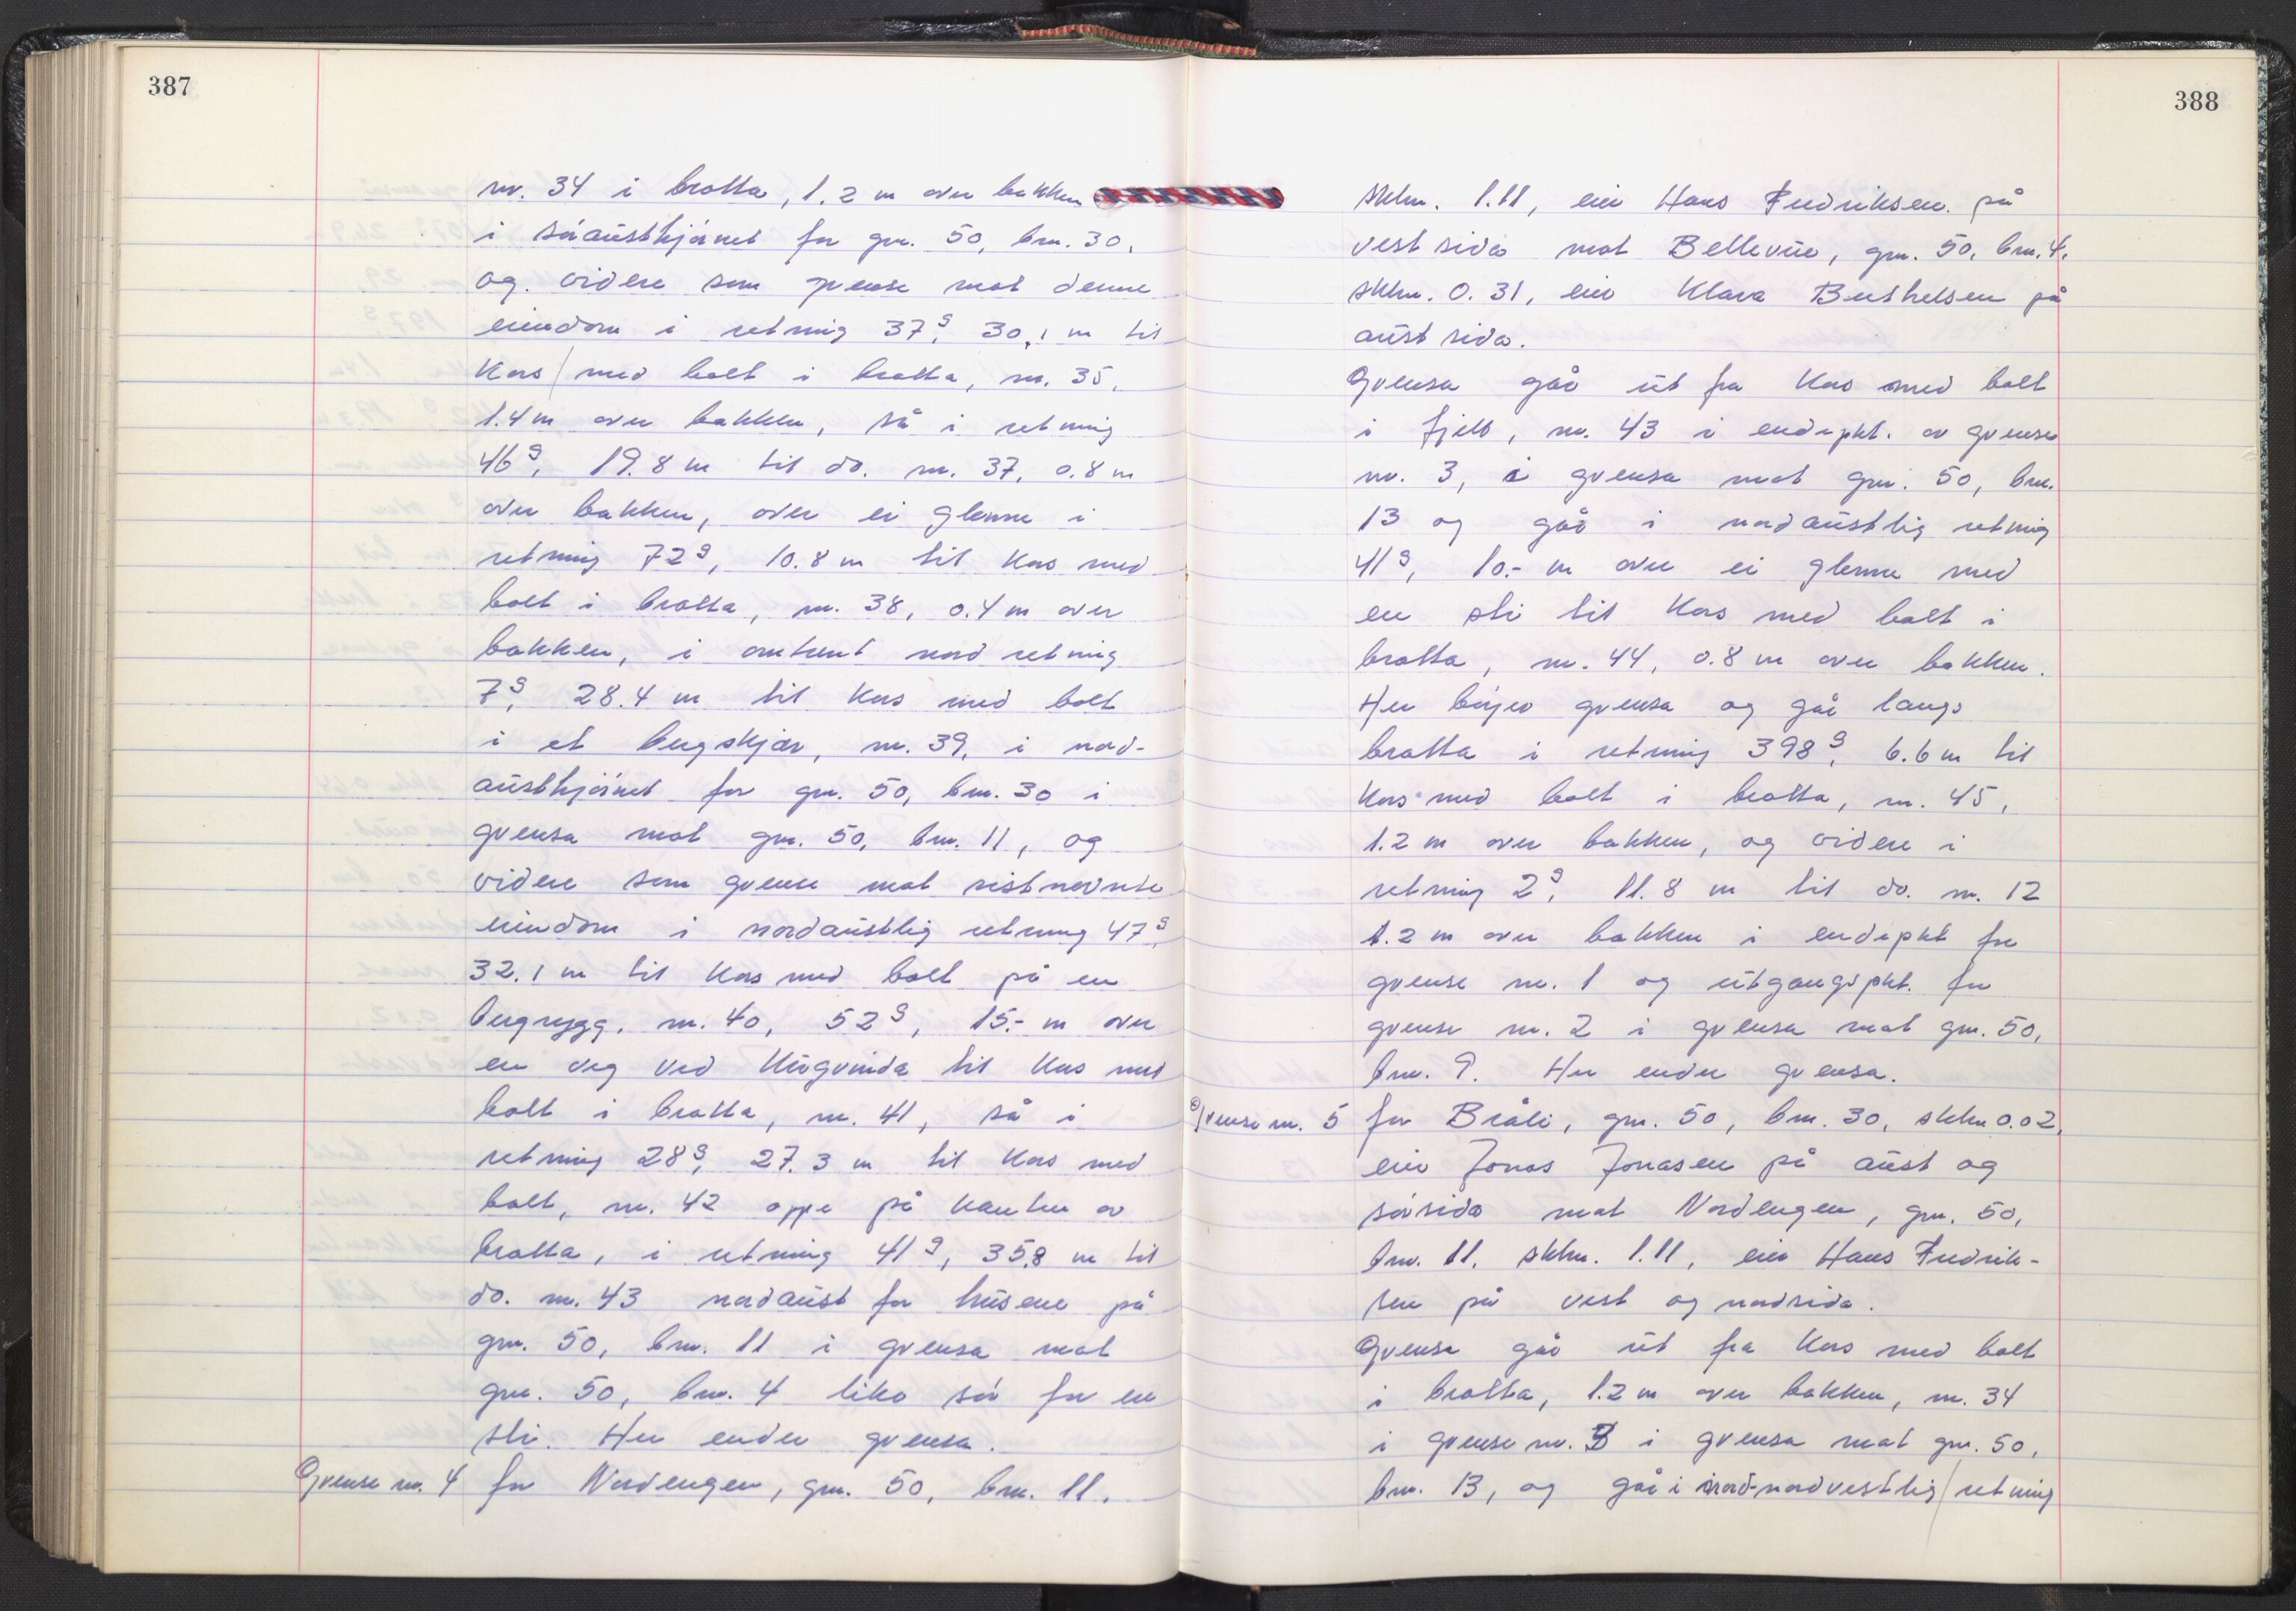 387
nr. 34 i bratta, 1.2 m over bakken
i søraustkjørnet for gnr. 50, bnr. 30,
og videre som grense mot denne
eiendom i retning 37g, 30,1 m til
kors med bolt i bratta, nr. 35,
1.4 m over bakken, så i retning
46g, 19.8 m til do. nr. 37, 0.8 m
over bakken, over ei glenne i
retning 72g, 10.8 m til kors med
bolt i bratta, nr. 38, 0.4 m over
bakken, i omtrent nord retning
7g, 28.4 m til kors med bolt
i et bergskjær, nr. 39, i nord-
austhjørnet for gnr. 50, bnr. 30 i
grensa mot gnr. 50, bnr. 11, og
videre som grense mot sistnevnte
eiendom i nordaustlig retning 47g,
32.1 m til kors med bolt på en
bergrygg, nr. 40, 52g, 15.- m over
en veg ved til kors med
bolt i bratta, nr. 41, så i
retning 28g, 27.3 m til kors med
bolt, nr. 42 oppe på kanten av
bratta, i retning 41g, 35,8 m til
do. nr. 43 nordaust for husene på
gnr. 50, bnr. 11 i grensa mot
gnr. 50, bnr. 4 like sør for en
sti. Her ender grensa.
Grense nr. 4 for Nordengen, gnr. 50, bnr. 11,
388
skln. 1.11, eier Hans Fredriksen på
vestsida mot Bellevue, gnr. 50, bnr. 4,
skln. 0.31, eier Klara Berthelsen på
austsida.
Grensa går ut fra kors med bolt
i fjell, nr. 43 i endepkt. av grense
nr. 3, i grensa mot gnr. 50, bnr.
13 og går i nordaustlig retning
41g, 10.- m over ei glenne med
en sti til kors med bolt i
bratta, nr. 44, 0.8 m over bakken.
Her bøyer grensa og går langs
bratta i retning 398g, 6.6 m til
kors med bolt i bratta, nr. 45,
1.2 m over bakken, og videre i
retning 2g, 11.8 m til do. nr. 12
1.2 m over bakken i endepkt for
grense nr. 1 og utgangspkt. for
grense nr. 2 i grensa mot gnr. 50,
bnr. 9. Her ender grensa.
Grense nr. 5 for Bråli, gnr. 50, bnr. 30, skln 0.02,
eier Jonas Jonasen på aust og
sørsida mot Nordengen, gnr. 50,
bnr. 11, skln. 1.11, eier Hans Fredrik-
sen på vest og nordsida.
Grensa går ut fra kors med bolt
i bratta, 1.2 m over bakken, nr. 34
i grense nr. 3 i grensa mot gnr. 50,
bnr. 13, og går i nord-nordvestlig retning